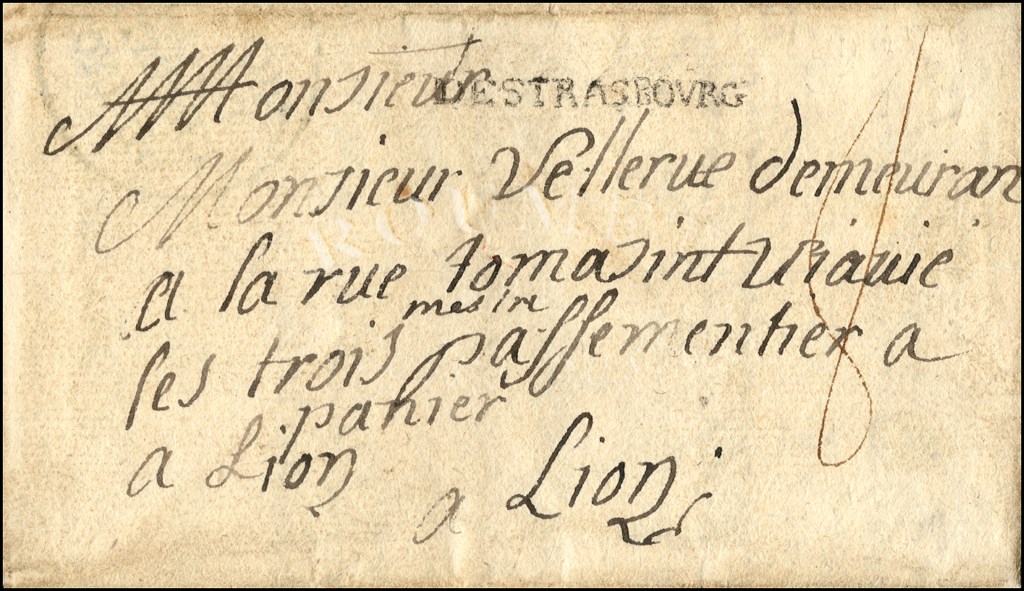 Monsieur
DE STRASBOVRG
Monsieur Vellerue demeuran
a la rue tomasint vis a vie
mestre
les trois passementier a
panier
a Lion
a Lion